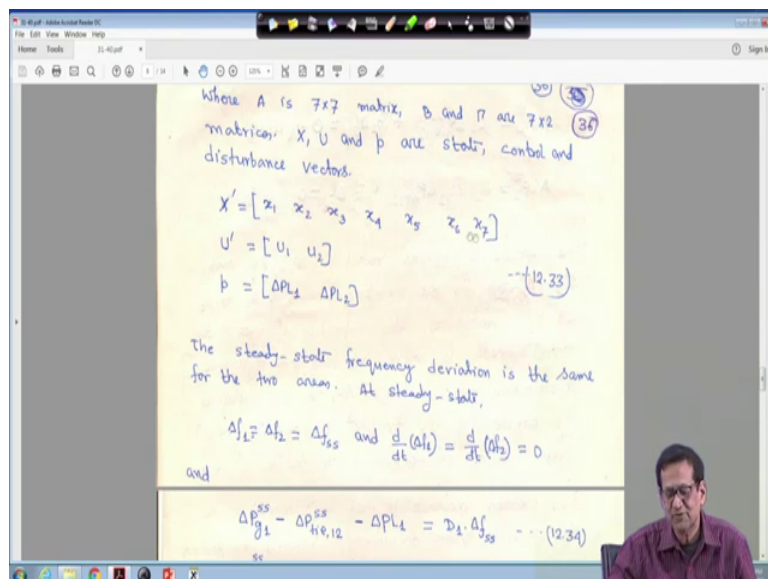 31-40.pdf - Adobe Acrobat Reader DC
File Edit View Window Help
Home Tools 31-40.pdf × Sign In
8 / 14 125%
Where A is 7×7 matrix, B and Γ are 7×2 (36)
matrices. X, U and p are state, control and
disturbance vectors.
X' = [x₁ x₂ x₃ x₄ x₅ x₆ x₇]
U' = [U₁ U₂]
p = [ΔPL₁ ΔPL₂] ---(12.33)
The steady-state frequency deviation is the same
for the two areas. At steady-state,
Δf₁ = Δf₂ = Δfss and d/dt(Δf₁) = d/dt(Δf₂) = 0
and
ΔPg1^ss - ΔPtie,12^ss - ΔPL₁ = D₁.Δfss ---(12.34)
ss